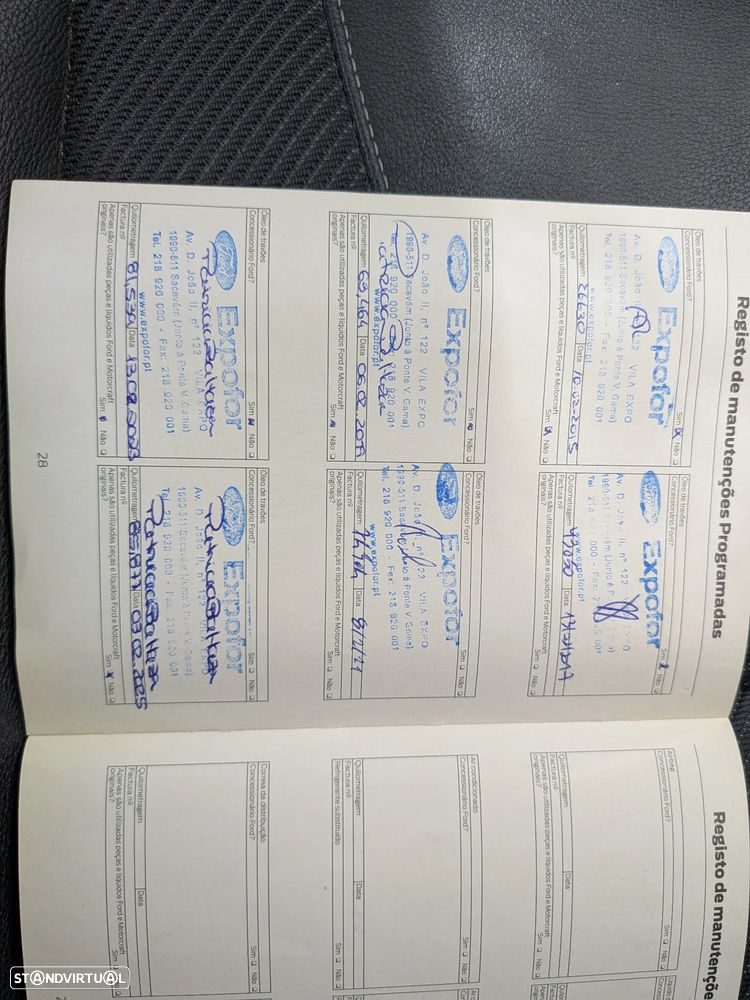 Registo de manutenções Programadas
Óleo de travões
Concessionário Ford?
Sim Não
Expofor
Av. D. João II, nº 122 VILA EXPO
1990-511 Sacavém (Junto à Ponte V. Gama)
Tel. 218 920 000 - Fax: 218 920 001
www.expofor.pt
Quilometragem 26630 Data 10-02-2015
Factura nº
Apenas são utilizadas peças e líquidos Ford e Motorcraft
originais? Sim Não
Óleo de travões
Concessionário Ford?
Sim Não
Expofor
Av. D. João II, nº 122
1990-511 Sacavém (Junto à Ponte V.
Tel. 218 920 000 - Fax: 218 920 001
www.expofor.pt
Quilometragem 43050 Data
Factura nº
Apenas são utilizadas peças e líquidos Ford e Motorcraft
originais? Sim Não
Óleo de travões
Concessionário Ford?
Sim Não
Expofor
Av. D. João II, nº 122 VILA EXPO
1990-511 Sacavém (Junto à Ponte V. Gama)
Tel. 218 920 000 - Fax: 218 920 001
www.expofor.pt
Quilometragem 63,464 Data
Factura nº
Apenas são utilizadas peças e líquidos Ford e Motorcraft
originais? Sim Não
Óleo de travões
Concessionário Ford?
Sim Não
Expofor
Av. D. João II, nº 122 VILA EXPO
1990-511 Sacavém (Junto à Ponte V. Gama)
Tel. 218 920 000 - Fax: 218 920 001
www.expofor.pt
Quilometragem Data
Factura nº
Apenas são utilizadas peças e líquidos Ford e Motorcraft
originais? Sim Não
Óleo de travões
Concessionário Ford?
Sim Não
Expofor
Av. D. João II, nº 122 VILA EXPO
1990-511 Sacavém (Junto à Ponte V. Gama)
Tel. 218 920 000 - Fax: 218 920 001
www.expofor.pt
Quilometragem 81,539 Data 13.02.2023
Factura nº
Apenas são utilizadas peças e líquidos Ford e Motorcraft
originais? Sim Não
Óleo de travões
Concessionário Ford?
Sim Não
Expofor
Av. D. João II, nº 122 VILA EXPO
1990-511 Sacavém (Junto à Ponte V. Gama)
Tel. 218 920 000 - Fax: 218 920 001
Quilometragem 85,877 Data 03.02.2025
Factura nº
Apenas são utilizadas peças e líquidos Ford e Motorcraft
originais? Sim Não
28
Registo de manutençõe
Airbag
Concessionário Ford?
Sim Não
Quilometragem Data
Factura nº
Apenas são utilizadas peças e líquidos Ford e Motorcraft
originais? Sim Não
Ar condicionado
Concessionário Ford?
Sim Não
Quilometragem Data
Factura nº
Refrigerante substituído Sim Não
Correia da distribuição
Concessionário Ford?
Sim Não
Quilometragem Data
Factura nº
Apenas são utilizadas peças e líquidos Ford e Motorcraft
originais? Sim Não
STANDVIRTUAL